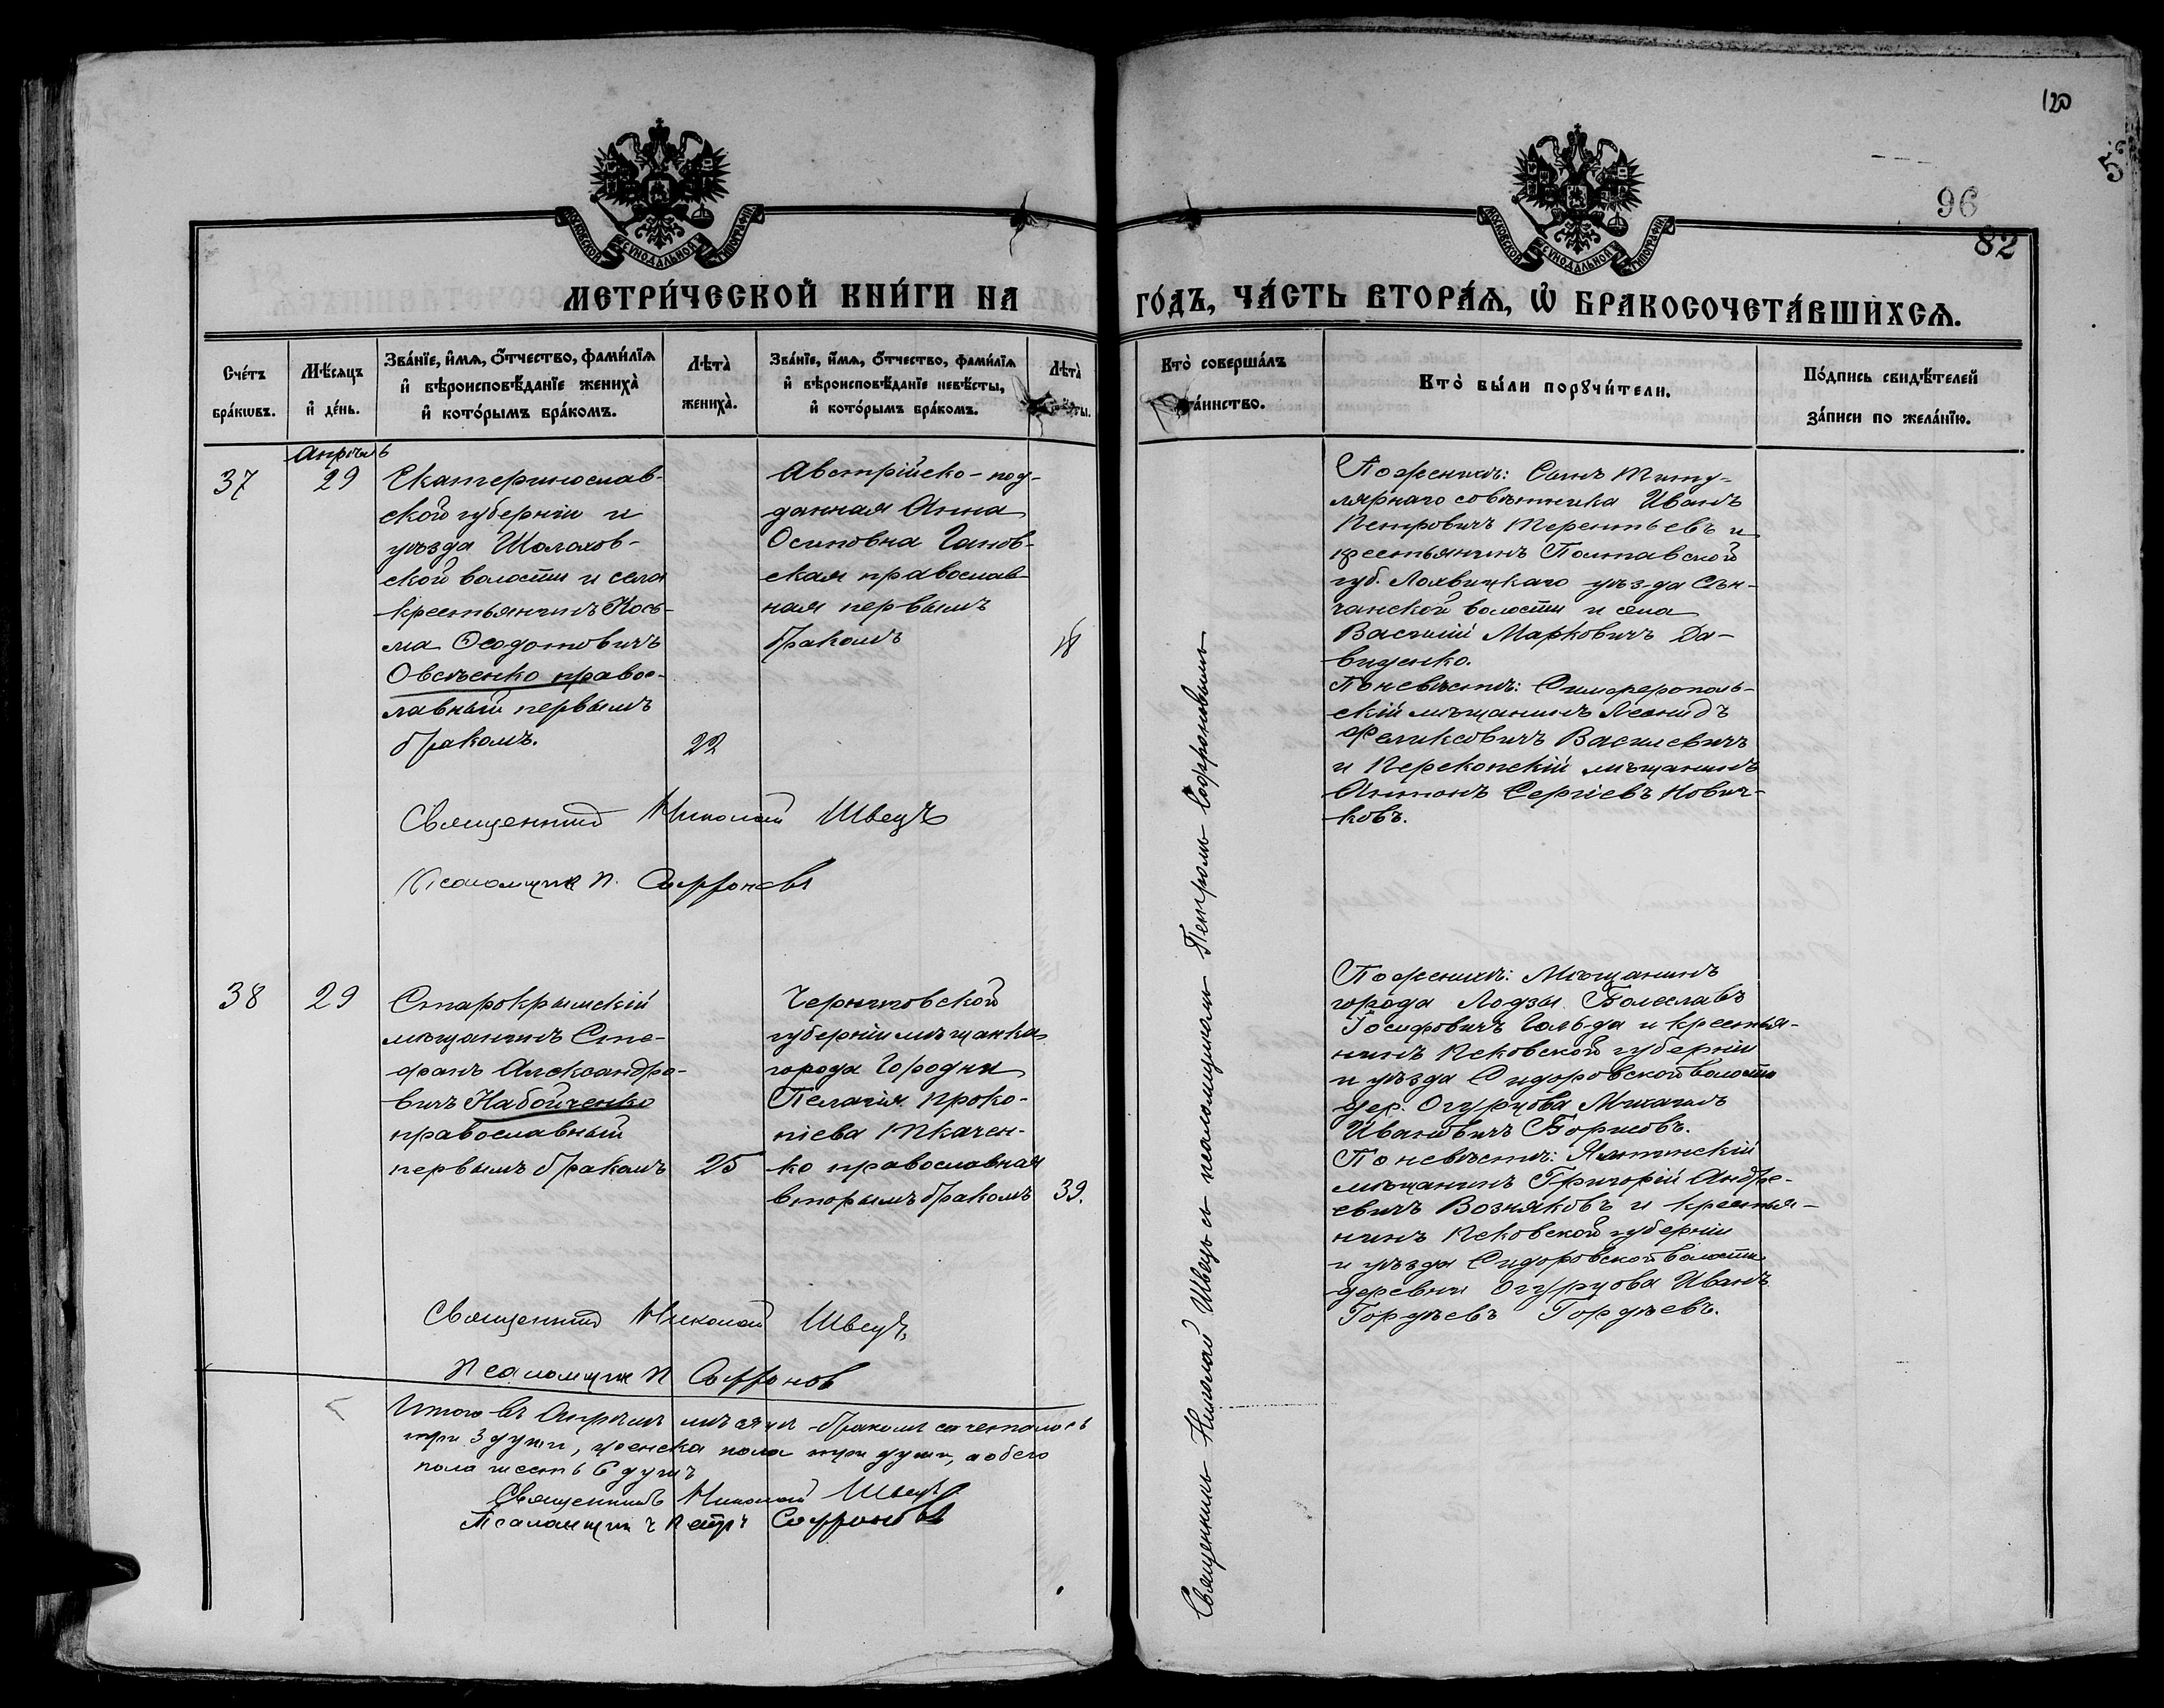 120
5
96
82
МОСКОВСКОЙ СѴНОДАЛЬНОЙ ТИПОГРАФІИ
МОСКОВСКОЙ СѴНОДАЛЬНОЙ ТИПОГРАФІИ
МЕТРИ́ЧЕСКОЙ КНИ́ГИ НА
ГО́ДЪ, ЧА́СТЬ ВТОРА́Я, Ѡ БРАКОСОЧЕТА́ВШИХСЯ.
Сче́тъ
бра́кѡвъ.
Мѣ́сяцъ
и де́нь.
Зва́нїе, и́мя, о́тчество, фами́лїя
и вѣроисповѣ́данїе жениха̀
и кото́рымъ бра́комъ.
Лѣта̀
жениха̀.
Зва́нїе, и́мя, о́тчество, фами́лїя
и вѣроисповѣ́данїе невѣ́сты,
и кото́рымъ бра́комъ.
Лѣта̀
Кто̀ соверша́лъ
та́инство.
Кто̀ бы́ли порꙋчи́тели.
По́дпись свидѣ́телей
за́писи по жела́нїю.
Апрѣль
37
29
Екатеринослав-
ской губерніи и
уѣзда Шолохов-
ской волости и села
крестьянинъ Кось-
ма Ѳеодотовичъ
Овсѣенко правос-
лавный первымъ
бракомъ.
22
Австрійско-под-
данная Анна
Осиповна Ганов-
ская православ-
ная первымъ
бракомъ
18
Священникъ Николай Швецъ
Псаломщикъ П. Софроновъ
По женихѣ: Сынъ Титу-
лярнаго совѣтника Иванъ
Петровичъ Терентьевъ и
крестьянинъ Полтавской
губ. Лохвицкаго уѣзда Сѣн-
чанской волости и села
Василій Марковичъ Да-
виденко.
По невѣстѣ: Симферополь-
скій мѣщанинъ Леонидъ
Феликсовичъ Василевичъ
и Перекопскій мѣщанинъ
Антонъ Сергіевъ Нович-
ковъ.
38
29
Старокрымскій
мѣщанинъ Сте-
фанъ Александро-
вичъ Набойченко
православный
первымъ бракомъ
25
Черниговской
губерніи мѣщанка
города Городни
Пелагія Проко-
піева Ткачен-
ко православная
вторымъ бракомъ
39.
Священникъ Николай Швецъ
Псаломщикъ П Софронов
По женихѣ: Мѣщанинъ
города Лодзы Болеславъ
Іосифовичъ Гольда и крестья-
нинъ Псковской губерніи
и уѣзда Сидоровской волости
дер. Огурцова Михаилъ
Ивановичъ Борисовъ.
По невѣстѣ: Ялтинскій
мѣщанинъ Григорій Андре-
евичъ Возняковъ и крестья-
нинъ Псковской губерніи
и уѣзда Сидоровской волости
деревни Огурцова Иванъ
Гордѣевъ Гордѣевъ.
Священникъ Николай Швецъ съ псаломщикомъ Петромъ Софроновымъ
Итого въ Апрѣлѣ мѣсяцѣ бракомъ сочеталось
три 3 души, женска пола три души, а обего
пола шесть 6 душъ
Священникъ Николай Швецъ
Псаломщикъ Петръ Софроновъ